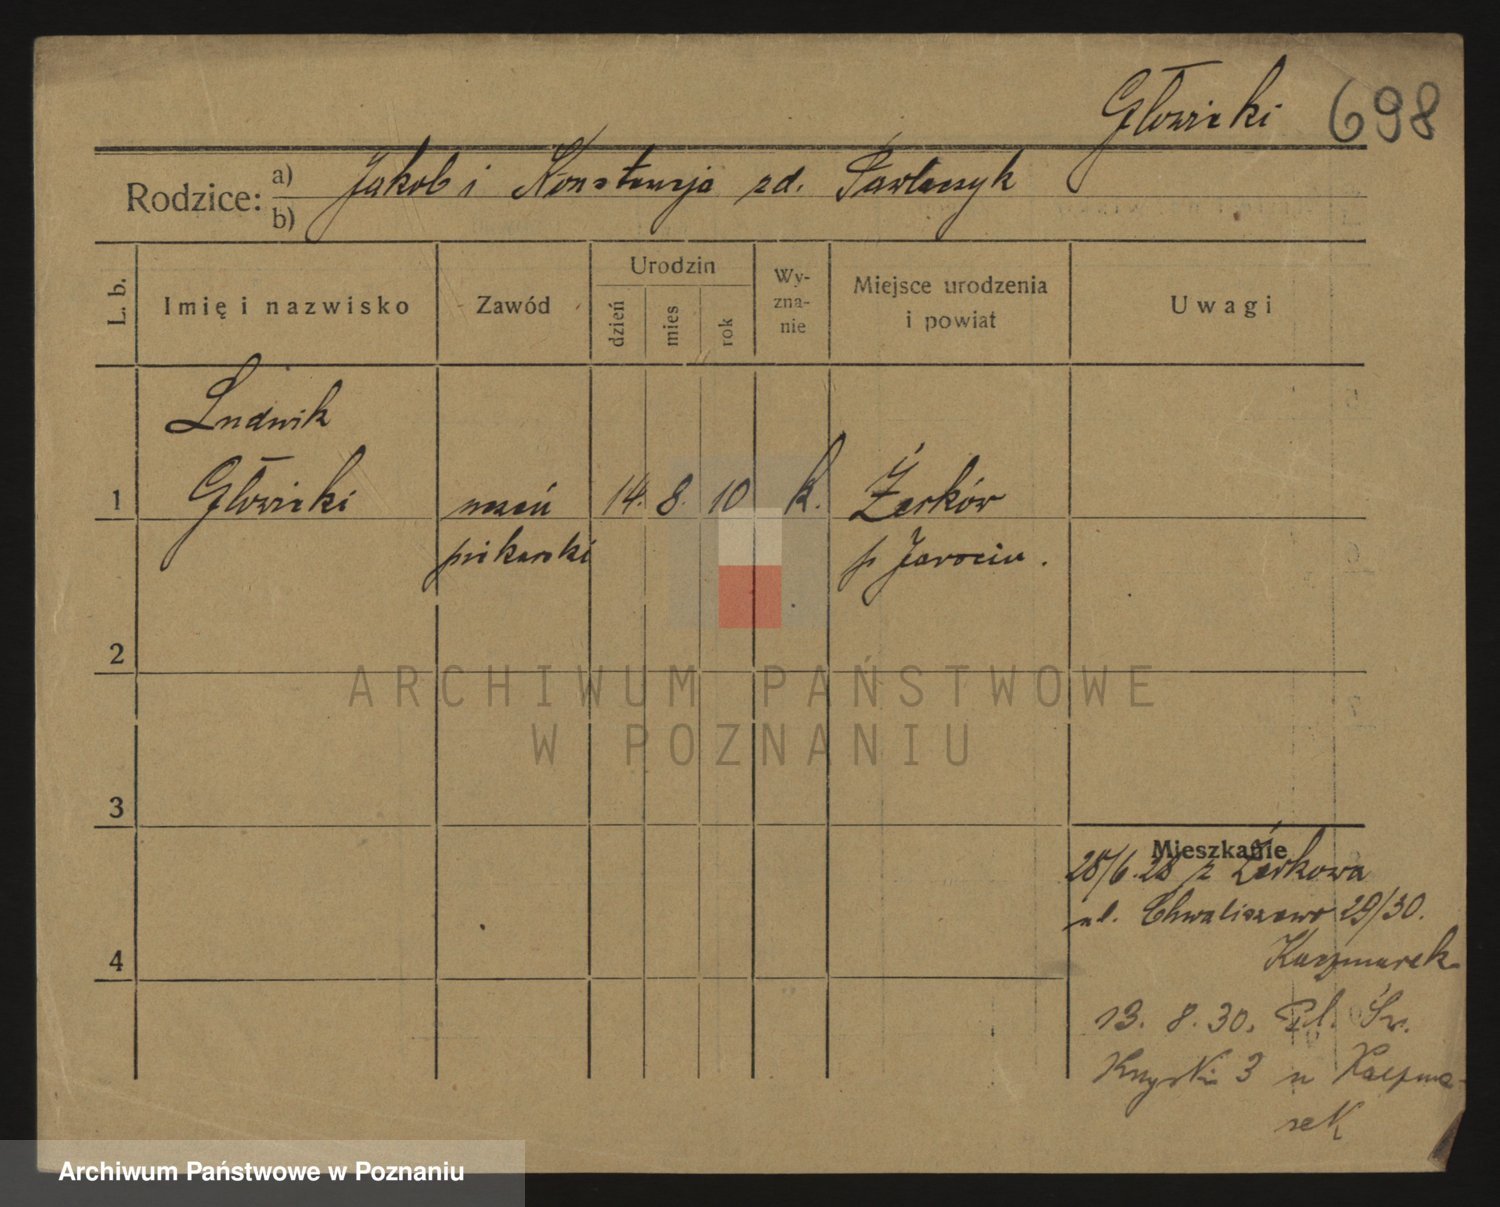 Głowicki 698
Rodzice: a) Jakób i Konstancja zd. Pawlaczyk
b)
L. b. Imię i nazwisko Zawód Urodzin dzień mies rok Wy-zna-nie Miejsce urodzenia i powiat Uwagi
Ludwik
1 Głowicki uczeń 14. 8. 10 k. Żerków
piekarski p Jarocin.
2
ARCHIWUM PAŃSTWOWE
W POZNANIU
3
Mieszkanie
28/6.28 z Żerkowa
ul. Chwaliszewo 29/30.
Kaczmarek
4
13. 8. 30. Pl. Św.
Krzyski 3 u Kaczma-
rek
Archiwum Państwowe w Poznaniu